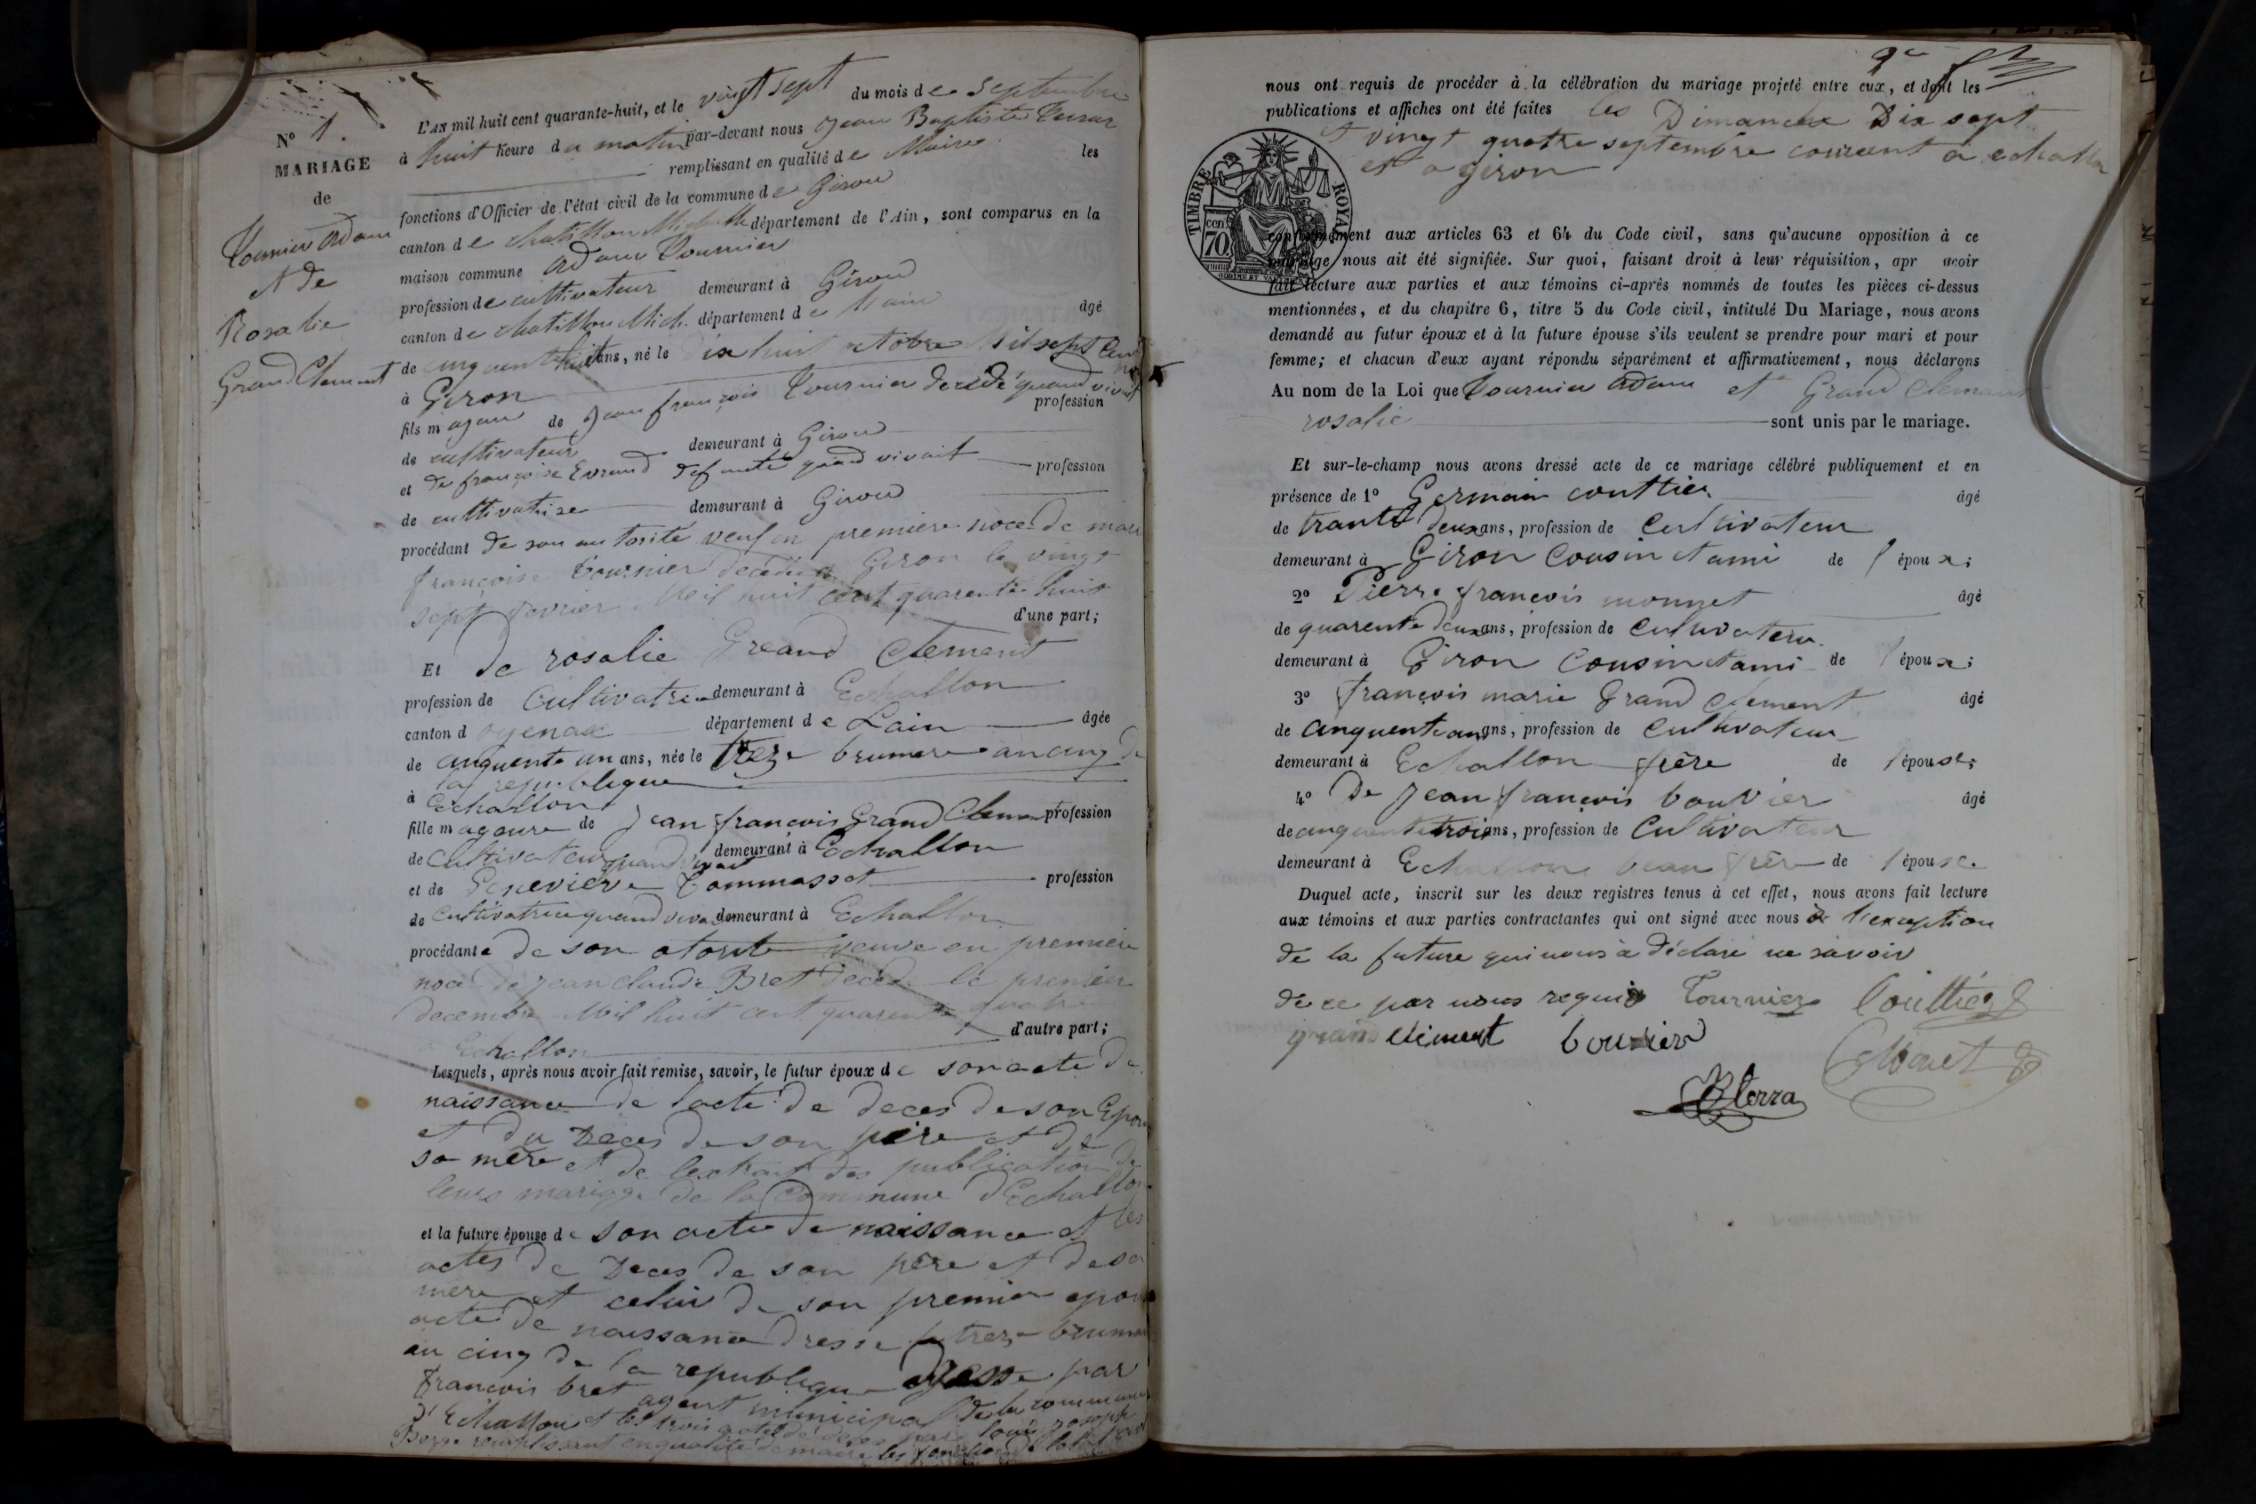 N° 1.
MARIAGE
de
Tournier Adam
et de
Rosalie
Grand Clement
L'AN mil huit cent quarante-huit, et le vingt sept du mois de septembre
à huit heure du matin par-devant nous Jean Baptiste
remplissant en qualité de Maire les
fonctions d'Officier de l'état civil de la commune de Giron
canton de chatillon Michaille département de l'Ain, sont comparus en la
maison commune Adam Tournier
profession de cultivateur demeurant à Giron
canton de chatillon Mich. département de l'ain âgé
de cinquente huit ans, né le dix huit octobre mil sept cent
à Giron
fils mageur de Jean françois Tournier décédé quand vivait profession
de cultivateur demeurant à Giron
et de françoise Evrard defunte quand vivait profession
de cultivatrise demeurant à Giron
procédant de son autorité veuf en premiere noce de marie
françoise tournier decedée a Giron le vingt
sept fevrier Mil huit cent quarente huit
d'une part;
Et de rosalie Greand Clement
profession de Cultivatrice demeurant à Echallon
canton d oyenax département de Lain âgée
de cinquente un ans, née le treze brumere an cinq de
la republique
à Echallon
fille mageure de Jean françois Grand Clement profession
de Cultivateur quand vivait demeurant à Echallon
et de Genevieve Tommasset profession
de Cultivatrice quand vivait demeurant à Echallon
procédante de son otorite veuve en premiere
noce de jean Claude Bret décédé le premier
decembre Mil huit cent quarente quatre
a Echallon d'autre part;
Lesquels, après nous avoir fait remise, savoir, le futur époux de son acte de
naissance de l'acte de deces de son Epouse
et du Deces de son père et de
sa mère et de l'extrait des publication de
leurs mariage de la Commune d'Echallon
et la future épouse de son acte de naissance et les
actes de Deces de son père et de sa
mere et celui de son premier epoux
acte de naissance dresse le treze brumere
an cinq de la republique dresse par
françois bret agent municipal de la commune
d'Echallon et les trois actes de deces par Louis joseph
remplissant en qualité de maire les fonctions
2e
nous ont requis de procéder à la célébration du mariage projeté entre eux, et dont les
publications et affiches ont été faites les Dimanche Dix sept
et vingt quatre septembre courent a echallon
et a Giron
TIMBRE ROYAL
70 cen.
conformément aux articles 63 et 64 du Code civil, sans qu'aucune opposition à ce
mariage nous ait été signifiée. Sur quoi, faisant droit à leur réquisition, apr avoir
fait lecture aux parties et aux témoins ci-après nommés de toutes les pièces ci-dessus
mentionnées, et du chapitre 6, titre 5 du Code civil, intitulé Du Mariage, nous avons
demandé au futur époux et à la future épouse s'ils veulent se prendre pour mari et pour
femme; et chacun d'eux ayant répondu séparément et affirmativement, nous déclarons
Au nom de la Loi que Tournier Adam et Grand Clement
rosalie sont unis par le mariage.
Et sur-le-champ nous avons dressé acte de ce mariage célébré publiquement et en
présence de 1° Germain couttier âgé
de trante deux ans, profession de Cultivateur
demeurant à Giron Cousin et ami de l'époux;
2° Pierre françois monnet âgé
de quarente deux ans, profession de Cultivateur
demeurant à Giron Cousin et ami de l'époux;
3° françois marie Grand Clement âgé
de cinquente ans, profession de Cultivateur
demeurant à Echallon frère de l'épouse;
4° De Jean françois bouvier âgé
de cinquente trois ans, profession de Cultivateur
demeurant à Echallon beau frère de l'épouse.
Duquel acte, inscrit sur les deux registres tenus à cet effet, nous avons fait lecture
aux témoins et aux parties contractantes qui ont signé avec nous à l'exception
de la future qui nous à déclaré ne savoir
de ce par nous requis Tournier Couttier
grand clement bouvier
Monet